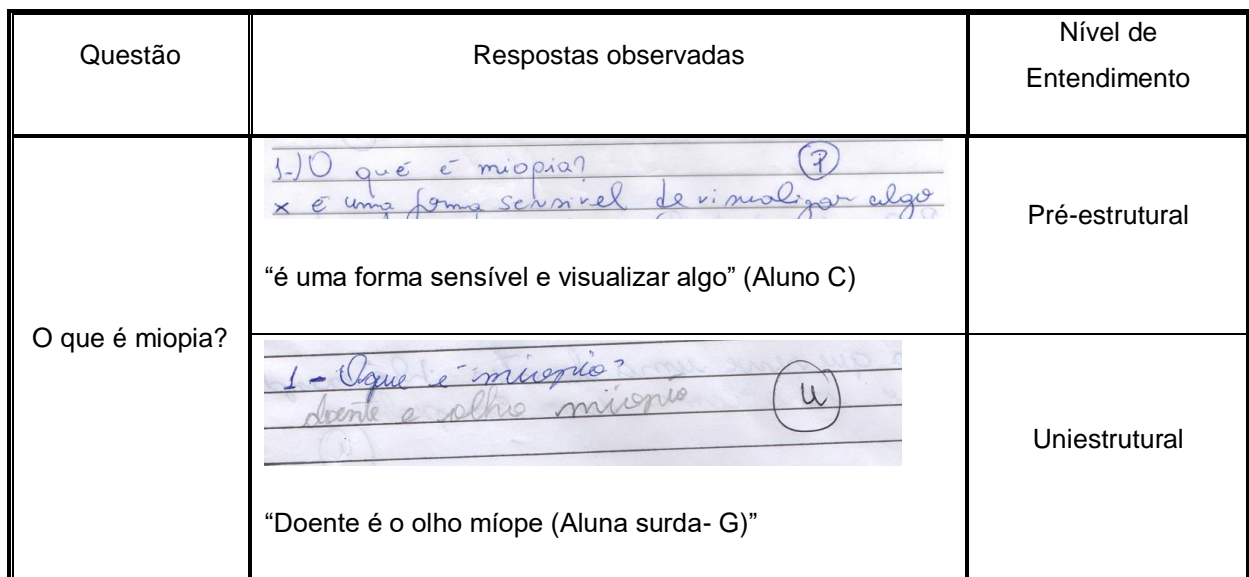 Questão
Respostas observadas
Nível de
Entendimento
O que é miopia?
1-) O que é miopia? P
x é uma forma sensivel de visualizar algo
“é uma forma sensível e visualizar algo” (Aluno C)
Pré-estrutural
1 - Oque é miiopia?
doente e olho miiopia U
“Doente é o olho míope (Aluna surda- G)”
Uniestrutural